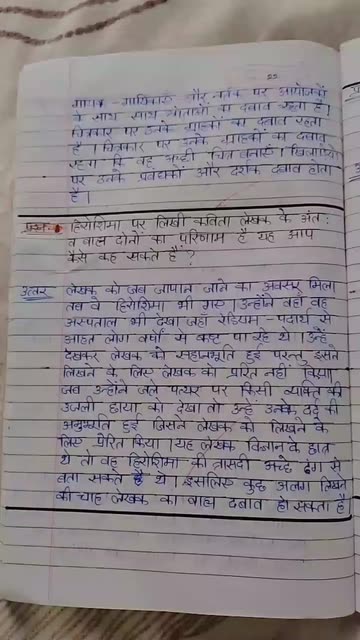 22
गायक - गायिकाओं और नर्तक पर आयोजकों
के साथ साथ श्रोताओं का दबाव रहता है।
चित्रकार पर उनके ग्राहकों का दबाव रहता
है। चित्रकार पर उनके ग्राहकों का दबाव
रहता कि वह अच्छी चित्र बनाएं। खिलाड़ियों
पर उनके प्रबंधकों और दर्शक दबाव होता
है।
प्रश्न हिरोशिमा पर लिखी कविता लेखक के अंतः
व बाह्य दोनों का परिणाम है यह आप
कैसे कह सकते हैं?
उत्तर लेखक को जब जापान जाने का अवसर मिला
तब वे हिरोशिमा भी गए। उन्होंने वहाँ वह
अस्पताल भी देखा जहाँ रेडियम - पदार्थ से
आहत लोग वर्षों से कष्ट पा रहे थे। उन्हें
देखकर लेखक को सहानुभूति हुई परन्तु इसने
लिखने के लिए लेखक को प्रेरित नहीं किया
जब उन्होंने जले पत्थर पर किसी व्यक्ति की
उजली छाया को देखा तो उन्हें उनके दर्द की
अनुभूति हुई जिसने लेखक को लिखने के
लिए प्रेरित किया। यह लेखक विज्ञान के छात्र
थे तो वह हिरोशिमा की त्रासदी अच्छे ढंग से
बता सकते थे। इसलिए कुछ अलग लिखने
की चाह लेखक का बाह्य दबाव हो सकता है